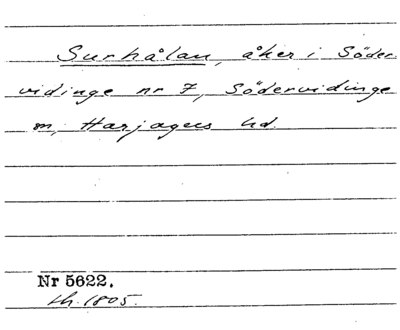 Surhålan, åker i Söder
vidinge nr 7, Södervidinge
sn, Harjagers hd.
Nr 5622.
lh. 1805.